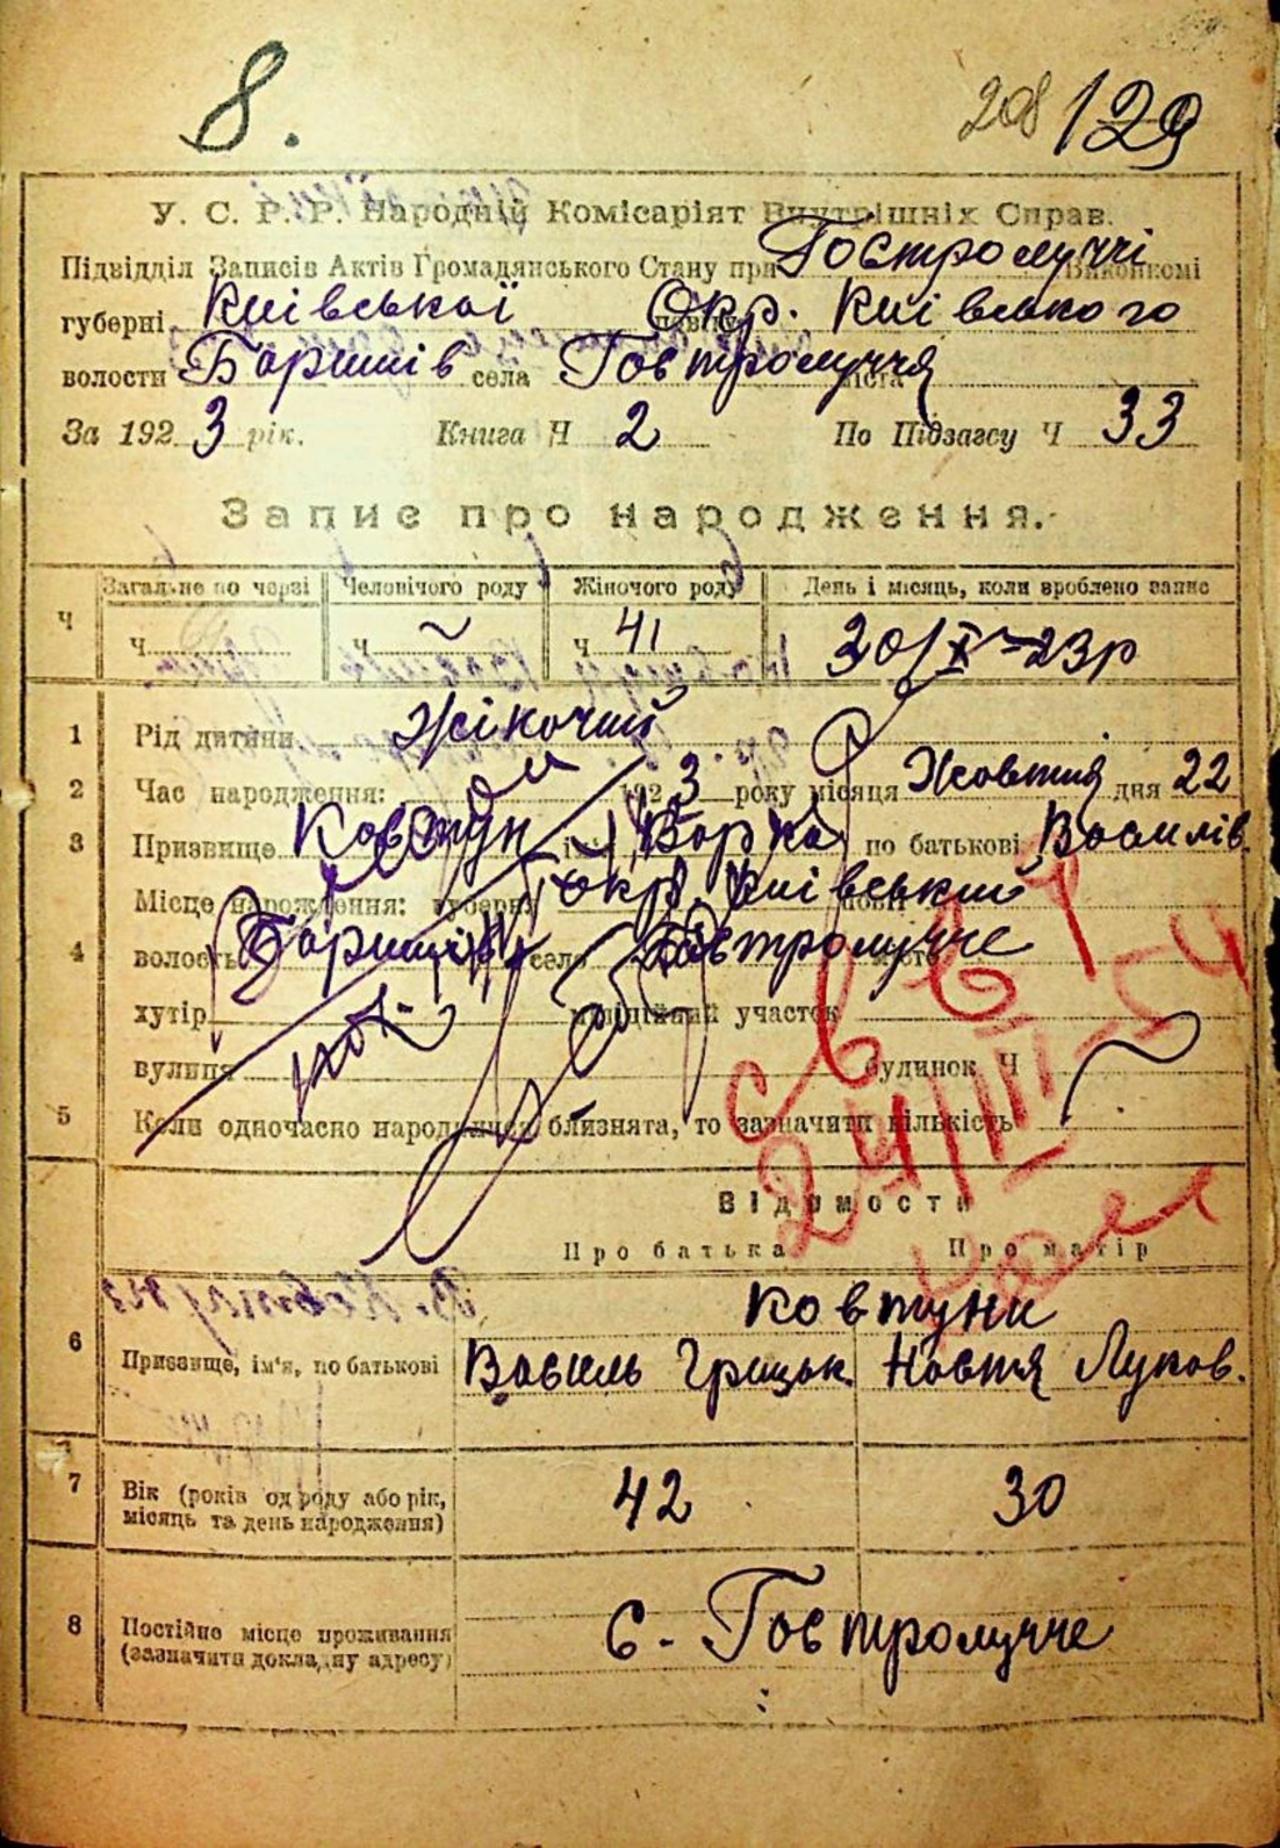 8.
208 129
У. С. Р. Р. Народній Комісаріят Внутрішніх Справ.
Підвідділ Записів Актів Громадянського Стану при Гостролуччі Виконкомі
губерні Київської Окр. Київського
волости Баришів села Гостролуччя міста
За 1923 рік. Книга Ч 2 По Підзагсу Ч 33
Запис про народження.
Ч Загальне по черзі Человічого роду Жіночого роду День і місяць, коли зроблено запис
Ч Ч Ч 41 30/X-23р
1 Рід дитини Жіночий
2 Час народження: 1923 року місяця Жовтня дня 22
3 Призвище Ковтун ім'я Варка по батькові Василів.
Місце народження: губерня Окр. Київський
4 волость Баришів село Гостролучче місто
хутір міліційний участок
вулиця будинок Ч
5 Коли одночасно народилися близнята, то зазначити кількість
св
24/III-54
Відомости
Про батька Про матір
Ковтуни
6 Призвище, ім'я, по батькові Василь Грицьк. Настя Луков.
7 Вік (років од роду або рік, місяць та день народження) 42 30
8 Постійне місце проживання (зазначити докладну адресу) с. Гостролучче